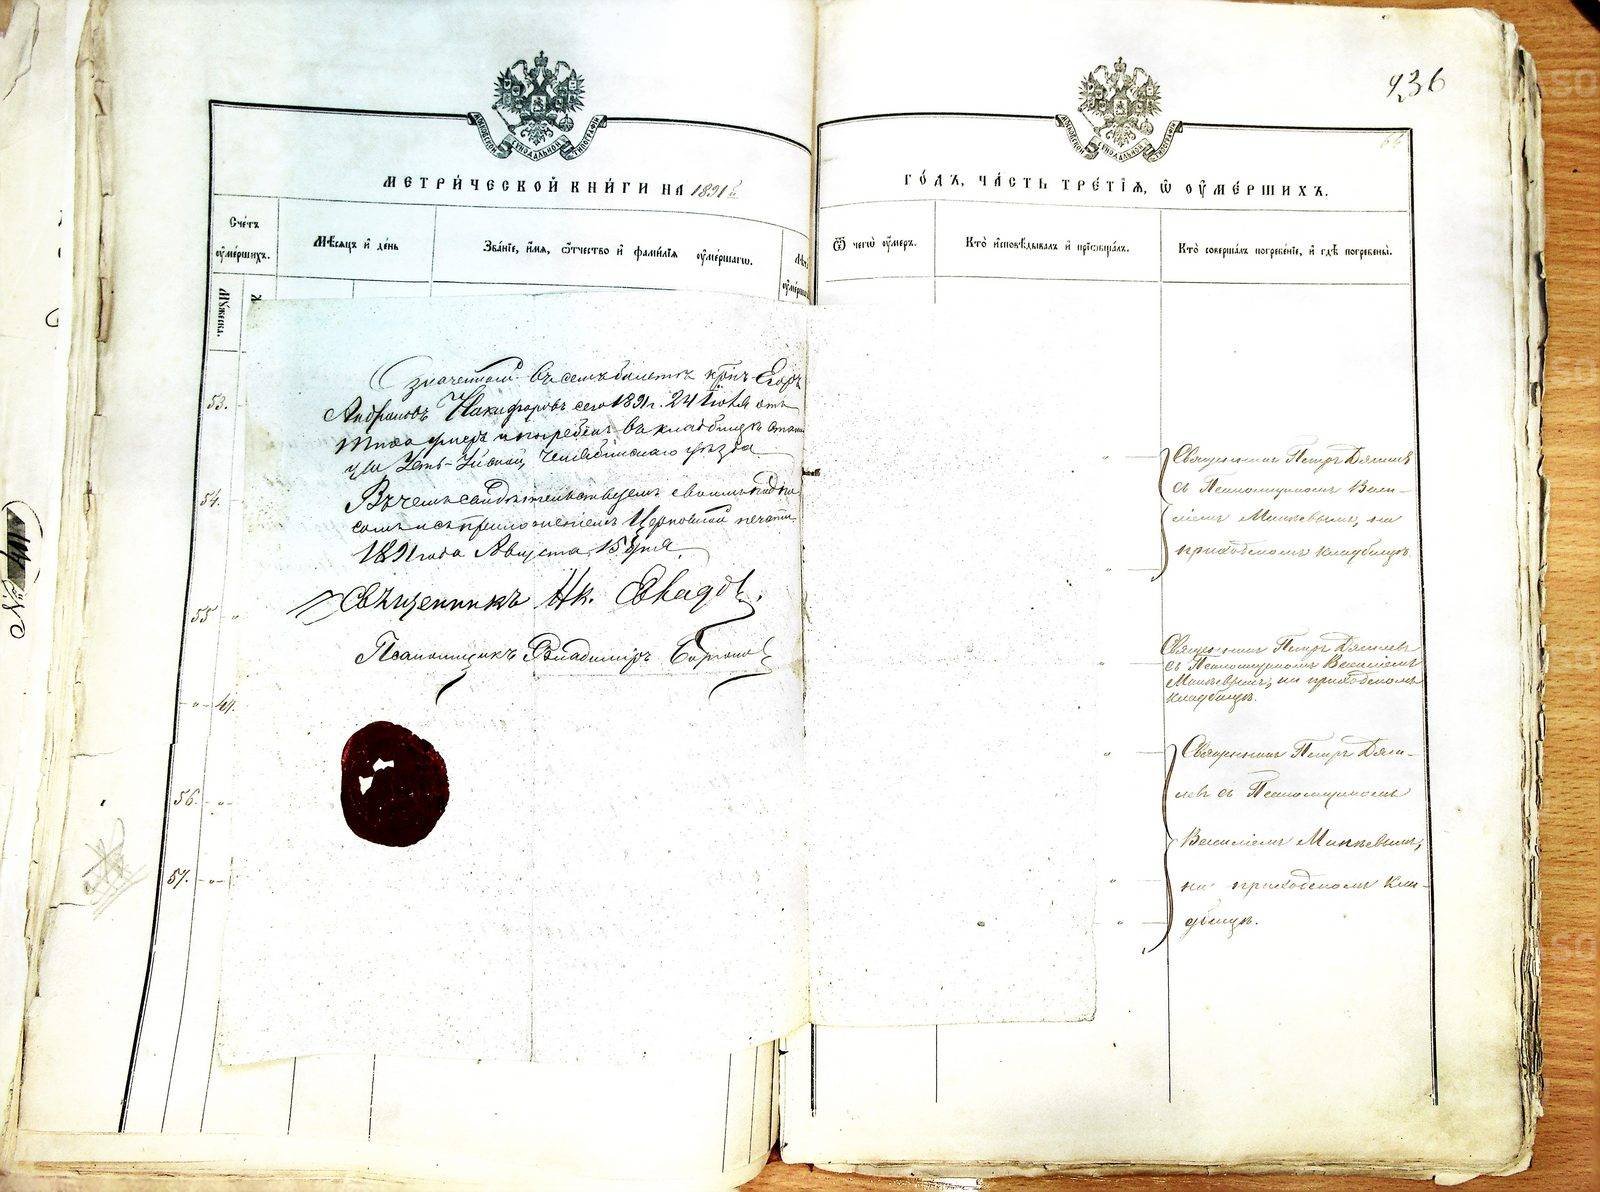 236
МЕТРИ́ЧЕСКОЙ КНИ́ГИ НА 1891й
ГО́ДЪ, ЧА́СТЬ ТРЕ́ТІѦ, Ѡ ОУ҆МЕ́РШИХЪ.
Сче́тъ оу҆ме́ршихъ.
Мѣ́сяцъ и҆ де́нь
Зва́ніе, и҆́мя, ѻ҆́тчество и҆ фами́лія оу҆ме́ршагѡ.
Ѿ чегѡ̀ оу҆́меръ.
Кто̀ и҆сповѣ́дывалъ и҆ пріѡбща́лъ.
Кто̀ соверша́лъ погребе́ніе, и҆ гдѣ̀ погребены̀.
Му́жеска.
53.
54.
55
44.
56.
57.
Означенный въ семъ билетѣ кр-нъ Егоръ
Андреановъ Никифоровъ сего 1891 г. 24 Іюля отъ
тифа умеръ и погребенъ въ кладбищѣ стани
цы Усть-Уйской, Челябинскаго уѣзда
Въ чемъ свидѣтельствуемъ своимъ подпи
сомъ и съ приложеніемъ Церковной печати
1891 года Августа 15 дня.
Священникъ Ник.
Псаломщикъ Владиміръ
Священникъ Петръ
съ Псаломщикомъ Васи-
ліемъ на
приходскомъ кладбищѣ.
Священникъ Петръ
съ Псаломщикомъ Василіемъ
на приходскомъ
кладбищѣ.
Священникъ Петръ
съ Псаломщикомъ
Василіемъ
на приходскомъ кла-
дбищѣ.